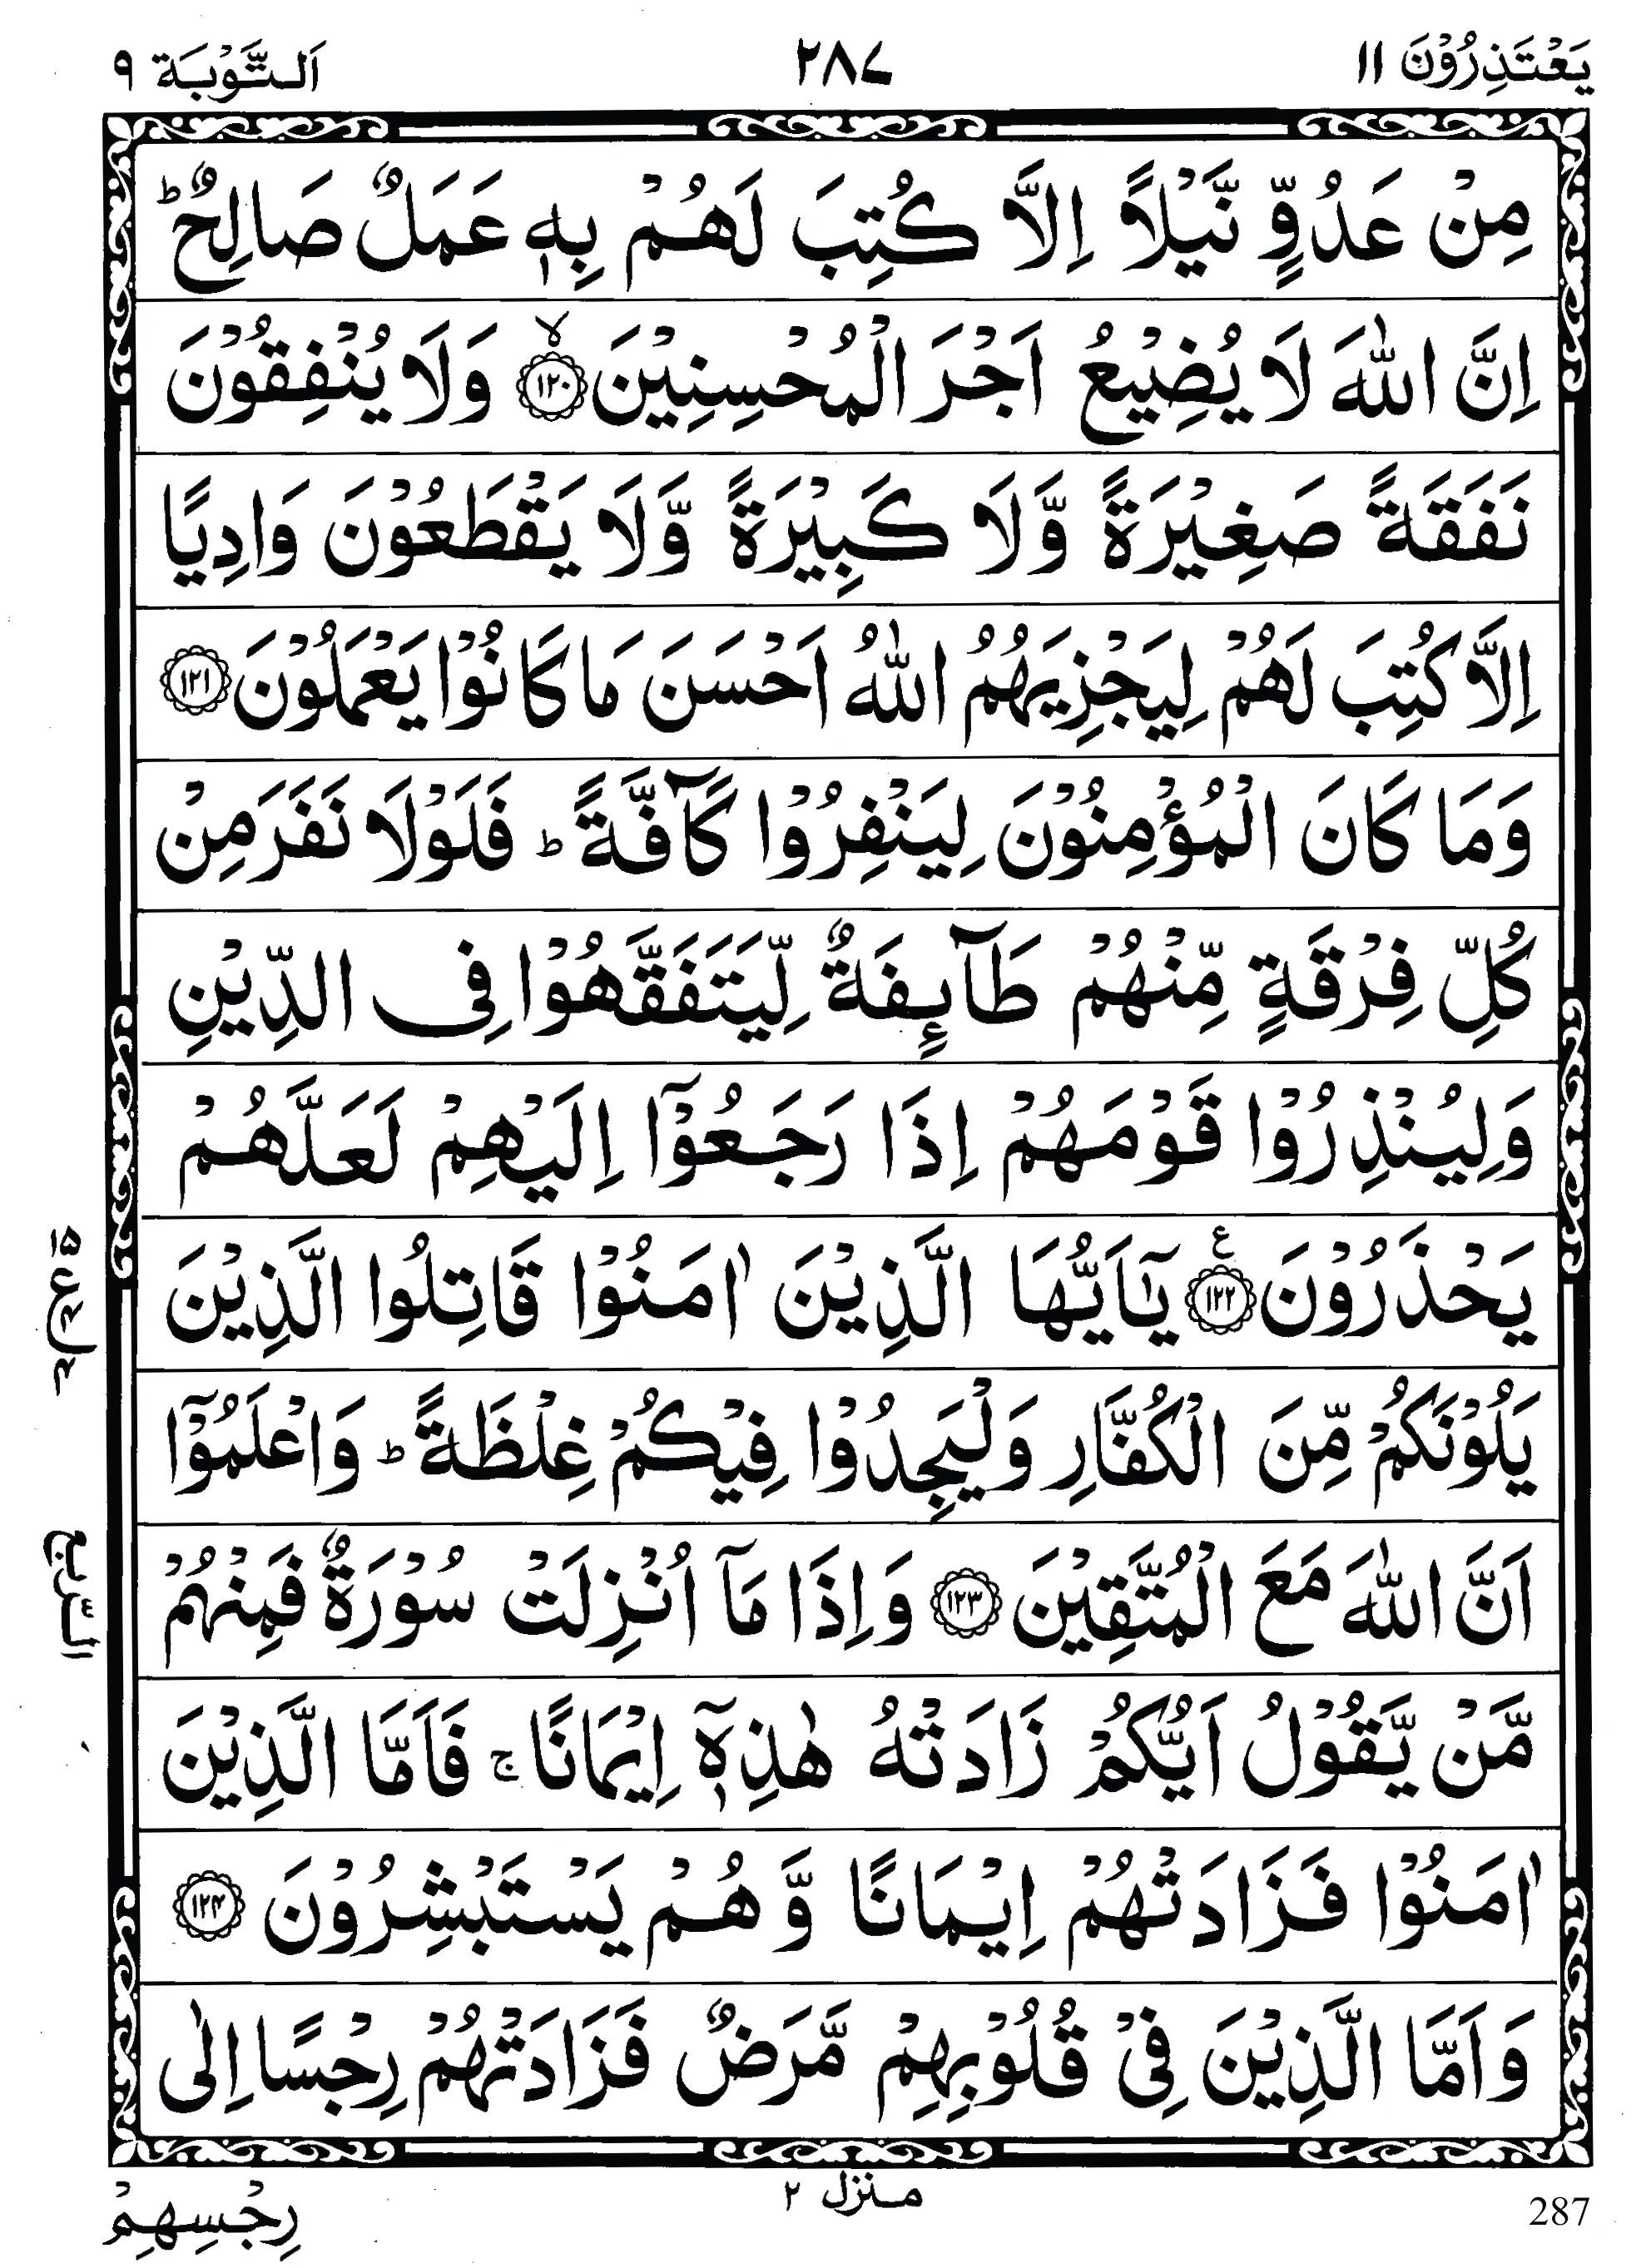 يَعْتَذِرُوْنَ ١١
٢٨٧
اَلتَّوْبَة ٩
مِنْ عَدُوٍّ نَّيْلًا اِلَّا كُتِبَ لَهُمْ بِهٖ عَمَلٌ صَالِحٌ ؕ
اِنَّ اللّٰهَ لَا يُضِيْعُ اَجْرَ الْمُحْسِنِيْنَ ۙ﴿۱۲۰﴾ وَلَا يُنْفِقُوْنَ
نَفَقَةً صَغِيْرَةً وَّلَا كَبِيْرَةً وَّلَا يَقْطَعُوْنَ وَادِيًا
اِلَّا كُتِبَ لَهُمْ لِيَجْزِيَهُمُ اللّٰهُ اَحْسَنَ مَا كَانُوْا يَعْمَلُوْنَ ﴿۱۲۱﴾
وَمَا كَانَ الْمُؤْمِنُوْنَ لِيَنْفِرُوْا كَآفَّةً ؕ فَلَوْلَا نَفَرَ مِنْ
كُلِّ فِرْقَةٍ مِّنْهُمْ طَآئِفَةٌ لِّيَتَفَقَّهُوْا فِى الدِّيْنِ
وَلِيُنْذِرُوْا قَوْمَهُمْ اِذَا رَجَعُوْٓا اِلَيْهِمْ لَعَلَّهُمْ
يَحْذَرُوْنَ ﴿۱۲۲﴾ ع يٰٓاَيُّهَا الَّذِيْنَ اٰمَنُوْا قَاتِلُوا الَّذِيْنَ
يَلُوْنَكُمْ مِّنَ الْكُفَّارِ وَلْيَجِدُوْا فِيْكُمْ غِلْظَةً ؕ وَاعْلَمُوْٓا
اَنَّ اللّٰهَ مَعَ الْمُتَّقِيْنَ ﴿۱۲۳﴾ وَاِذَا مَآ اُنْزِلَتْ سُوْرَةٌ فَمِنْهُمْ
مَّنْ يَّقُوْلُ اَيُّكُمْ زَادَتْهُ هٰذِهٖٓ اِيْمَانًا ۚ فَاَمَّا الَّذِيْنَ
اٰمَنُوْا فَزَادَتْهُمْ اِيْمَانًا وَّهُمْ يَسْتَبْشِرُوْنَ ﴿۱۲۴﴾
وَاَمَّا الَّذِيْنَ فِىْ قُلُوْبِهِمْ مَّرَضٌ فَزَادَتْهُمْ رِجْسًا اِلٰى
الرّبع
منزل ٢
رِجْسِهِمْ
287